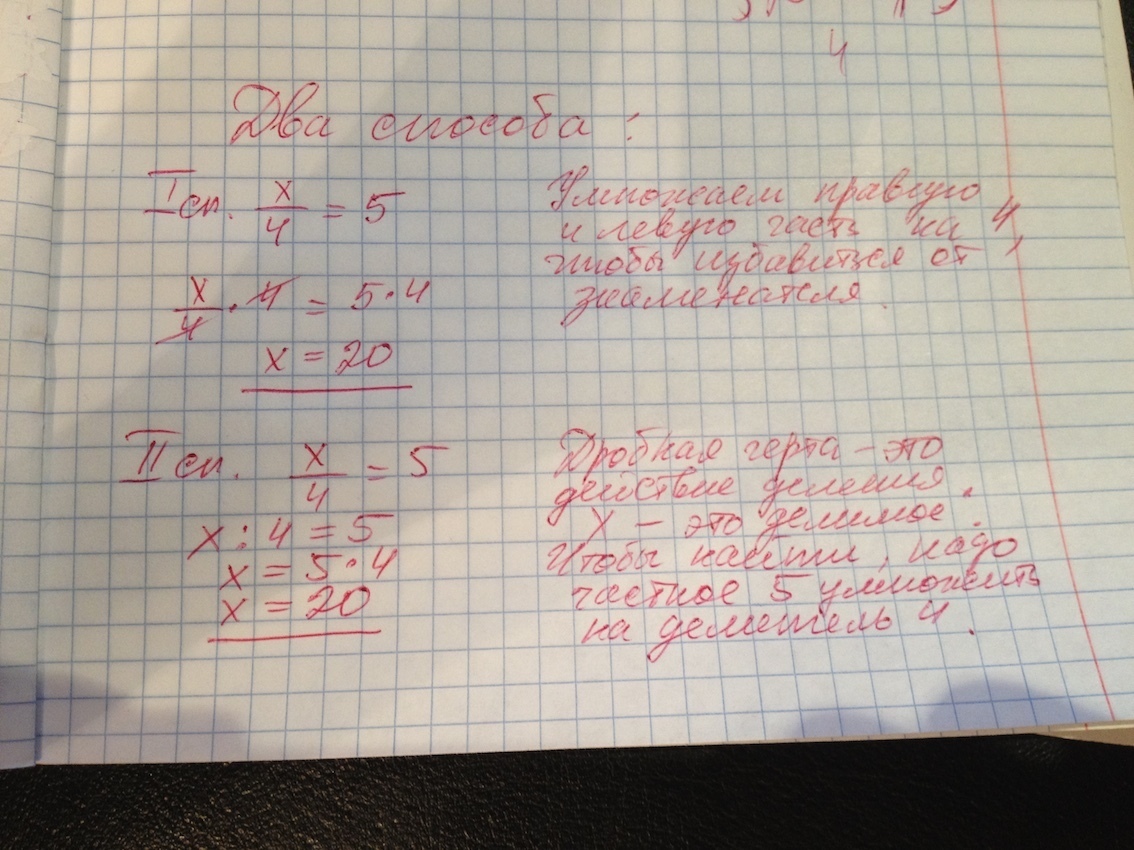 4
Два способа:
I сп. x/4 = 5
Умножаем правую
и левую часть на 4,
чтобы избавиться от
знаменателя.
x/4 · 4 = 5·4
x = 20
II сп. x/4 = 5
Дробная черта – это
действие деления.
X – это делимое.
Чтобы найти, надо
частное 5 умножить
на делитель 4.
x : 4 = 5
x = 5·4
x = 20